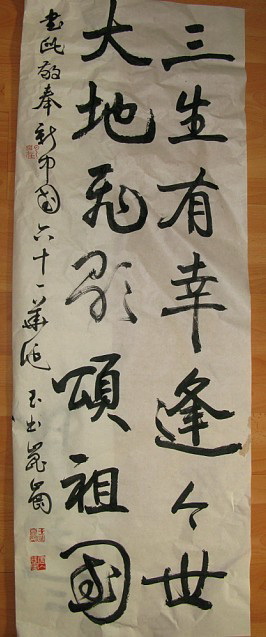 三生有幸逢今世
大地飛歌頌祖國
書此敬奉新中國六十一華诞 玉出崑崗